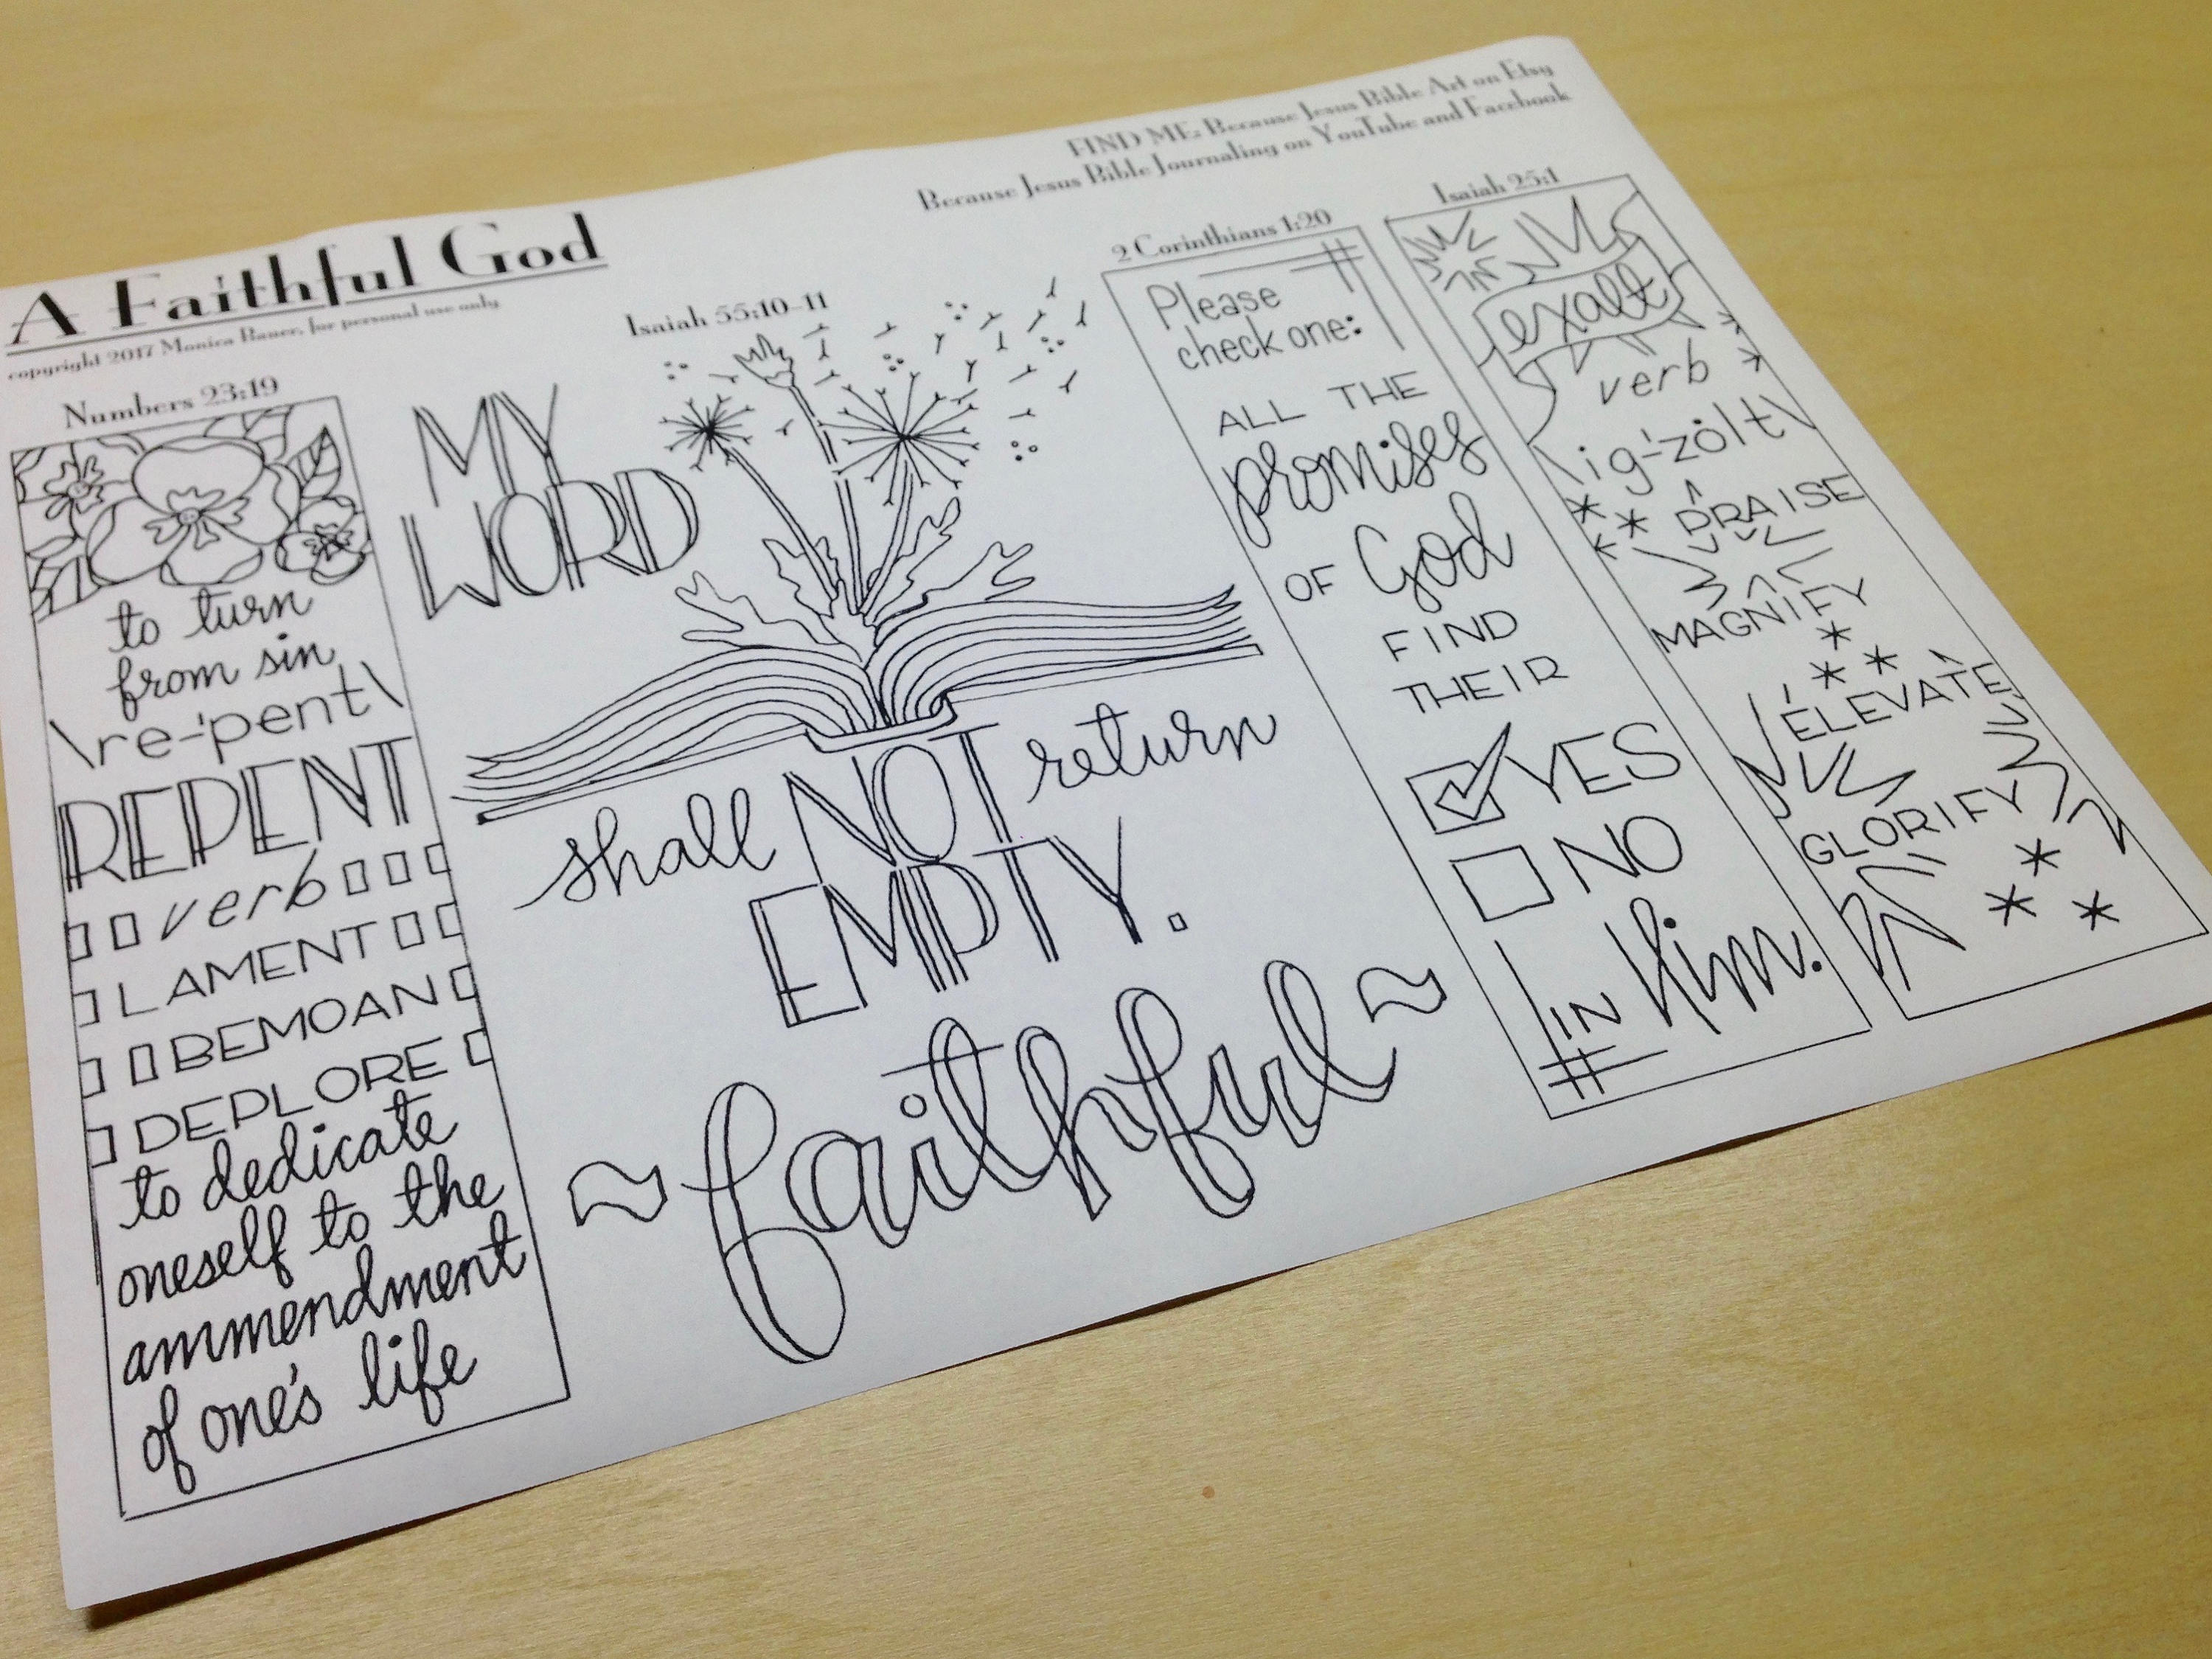 A Faithful God
copyright 2017 Monica Bauer, for personal use only
FIND ME: Because Jesus Bible Art on Etsy
Because Jesus Bible Journaling on YouTube and Facebook
Numbers 23:19
to turn
from sin
\re-'pent\
REPENT
verb
LAMENT
BEMOAN
DEPLORE
to dedicate
oneself to the
ammendment
of one's life
Isaiah 55:10-11
MY
WORD
shall NOT return
EMPTY.
~faithful~
2 Corinthians 1:20
Please
check one:
ALL THE
promises
OF God
FIND
THEIR
YES
NO
IN Him.
Isaiah 25:1
exalt
verb
\ig-'zȯlt\
PRAISE
MAGNIFY
ELEVATE
GLORIFY